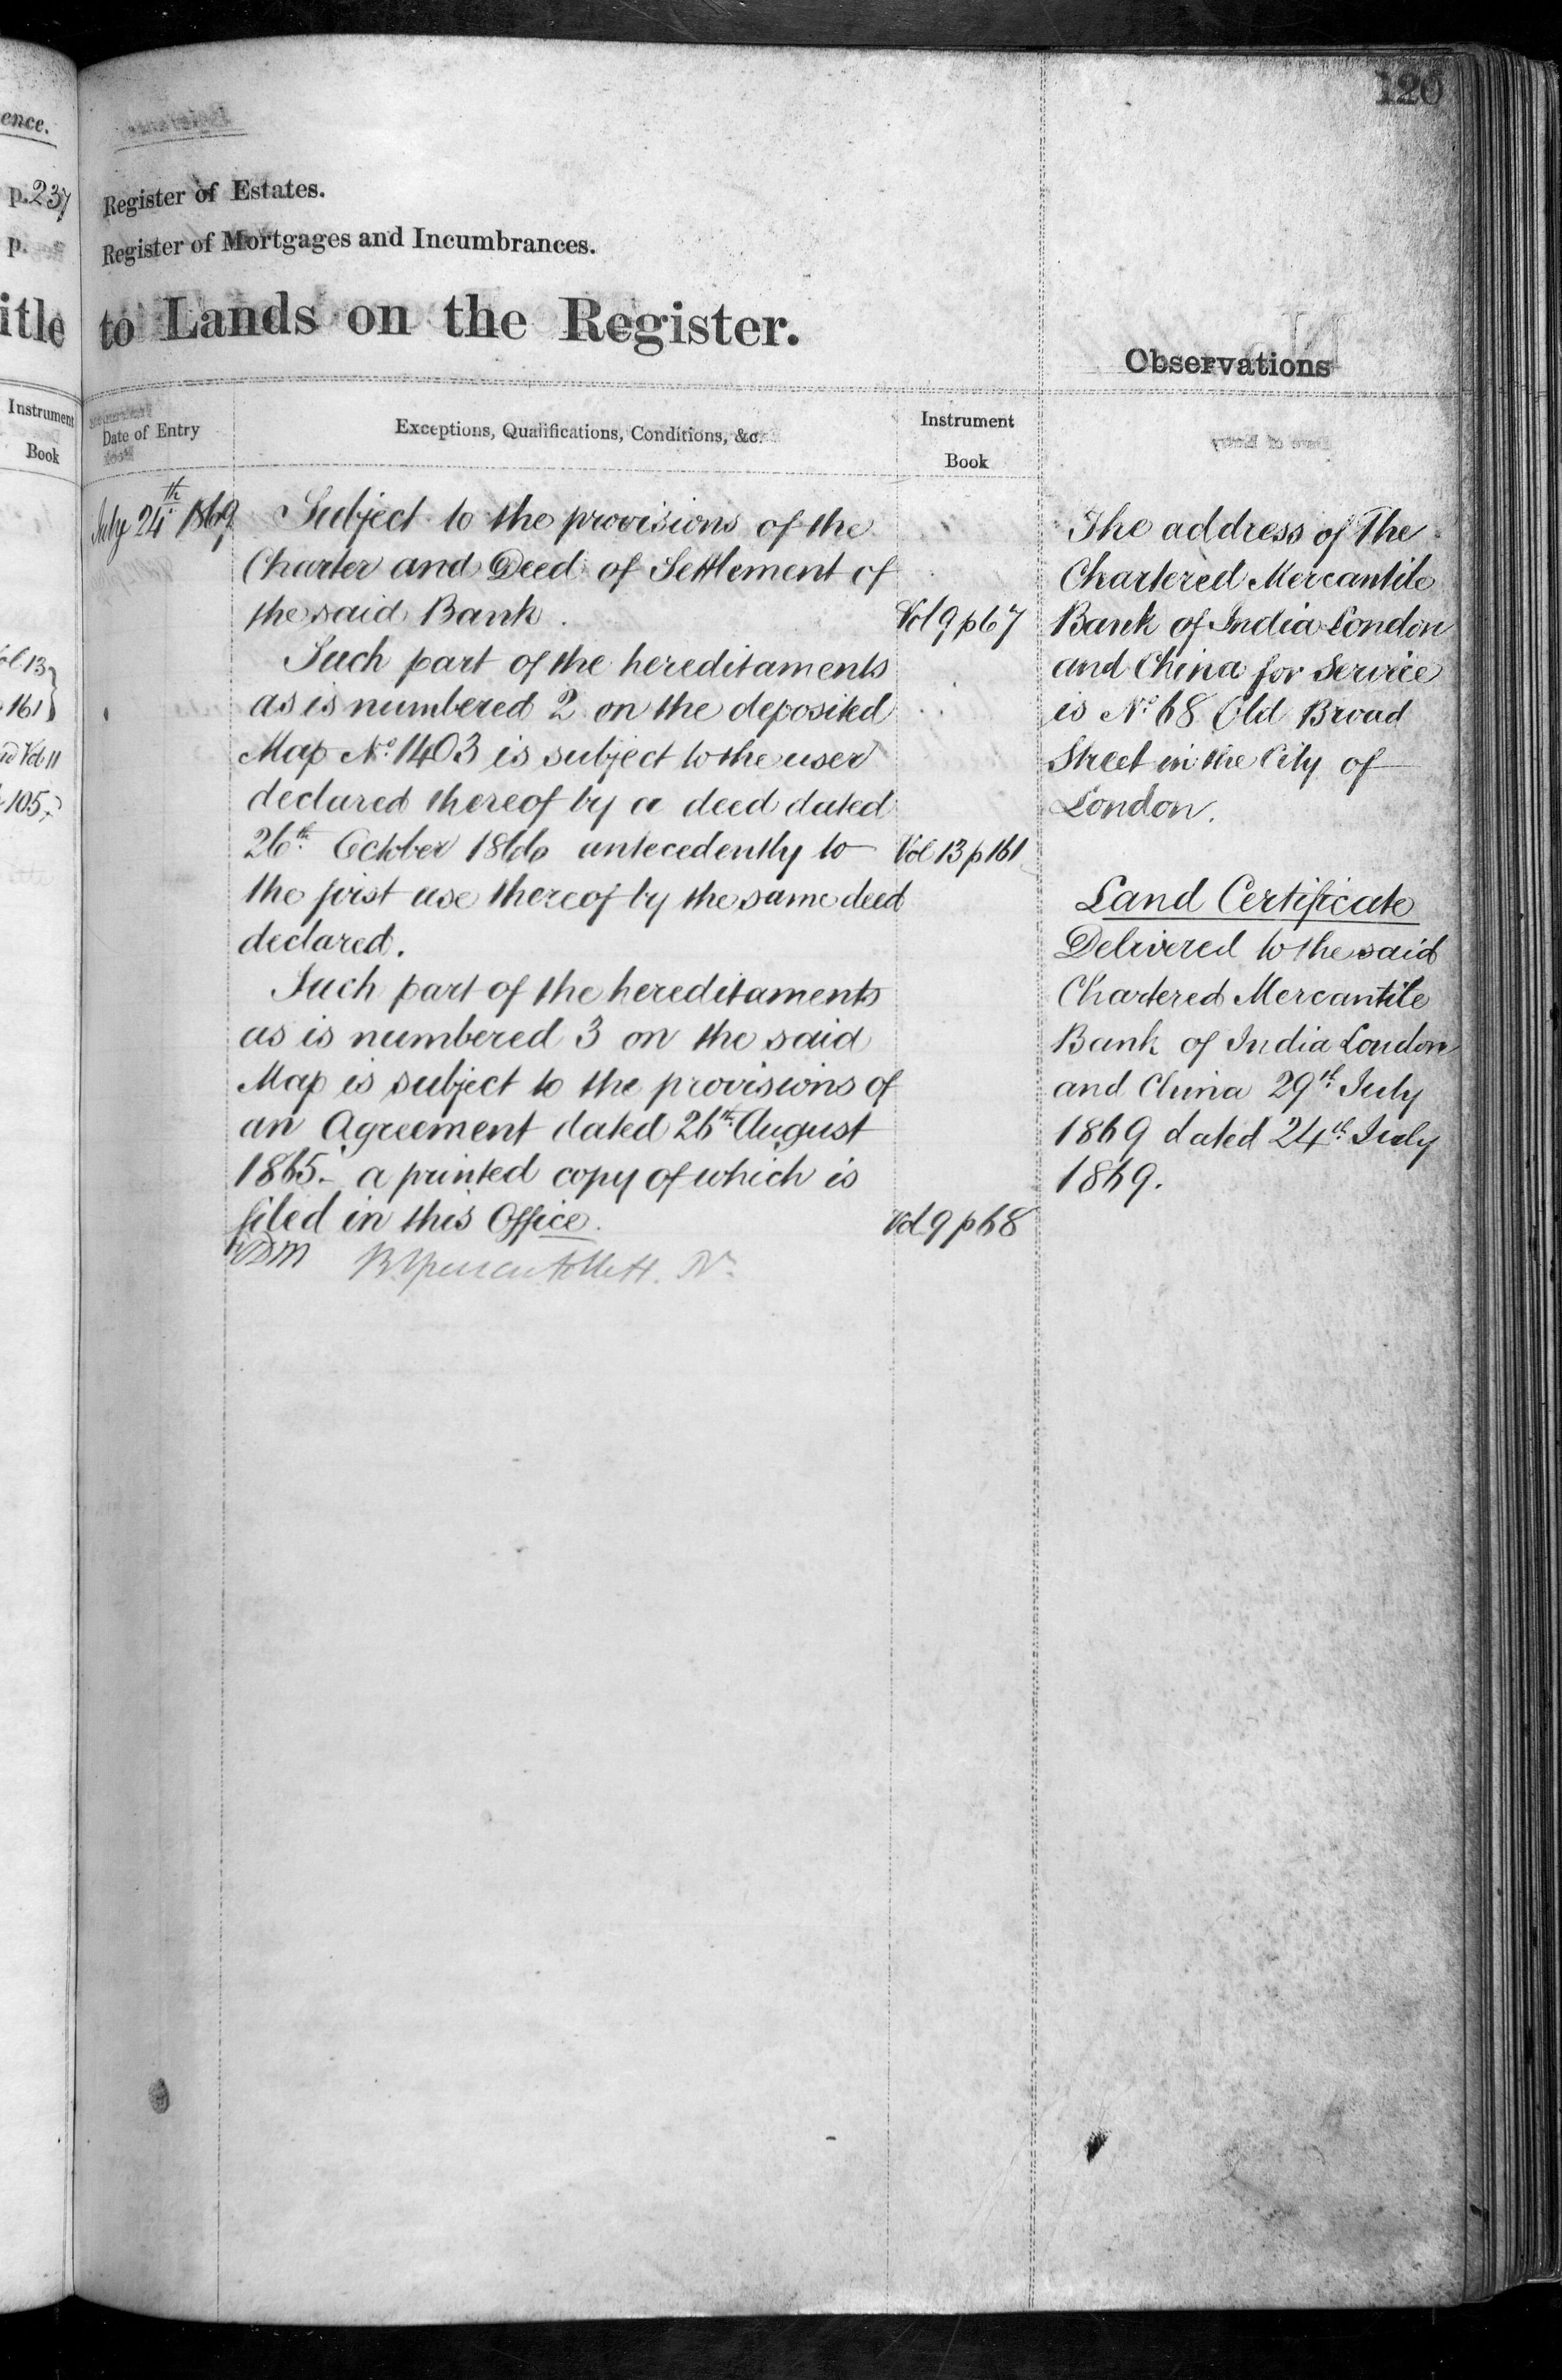 120
ence.
p. 237
p.
itle
Instrument
Book
161
Vol 11
105
Register of Estates.
Register of Mortgages and Incumbrances.
to Lands on the Register.
Observations
Date of Entry
Exceptions, Qualifications, Conditions, &c.
Instrument
Book
July 24th 1869
Subject to the provisions of the
Charter and Deed of Settlement of
the said Bank.
Vol 9 p 67
Such part of the hereditaments
as is numbered 2 on the deposited
Map No. 1403 is subject to the user
declared thereof by a deed dated
26th October 1866 antecedently to
Vol 13 p 161
the first use thereof by the same deed
declared.
Such part of the hereditaments
as is numbered 3 on the said
Map is subject to the provisions of
an Agreement dated 26th August
1865. a printed copy of which is
filed in this Office.
Vol 9 p 68
The address of The
Chartered Mercantile
Bank of India London
and China for Service
is No. 68 Old Broad
Street in the City of
London.
Land Certificate
Delivered to the said
Chartered Mercantile
Bank of India London
and China 29th July
1869 dated 24th July
1869.